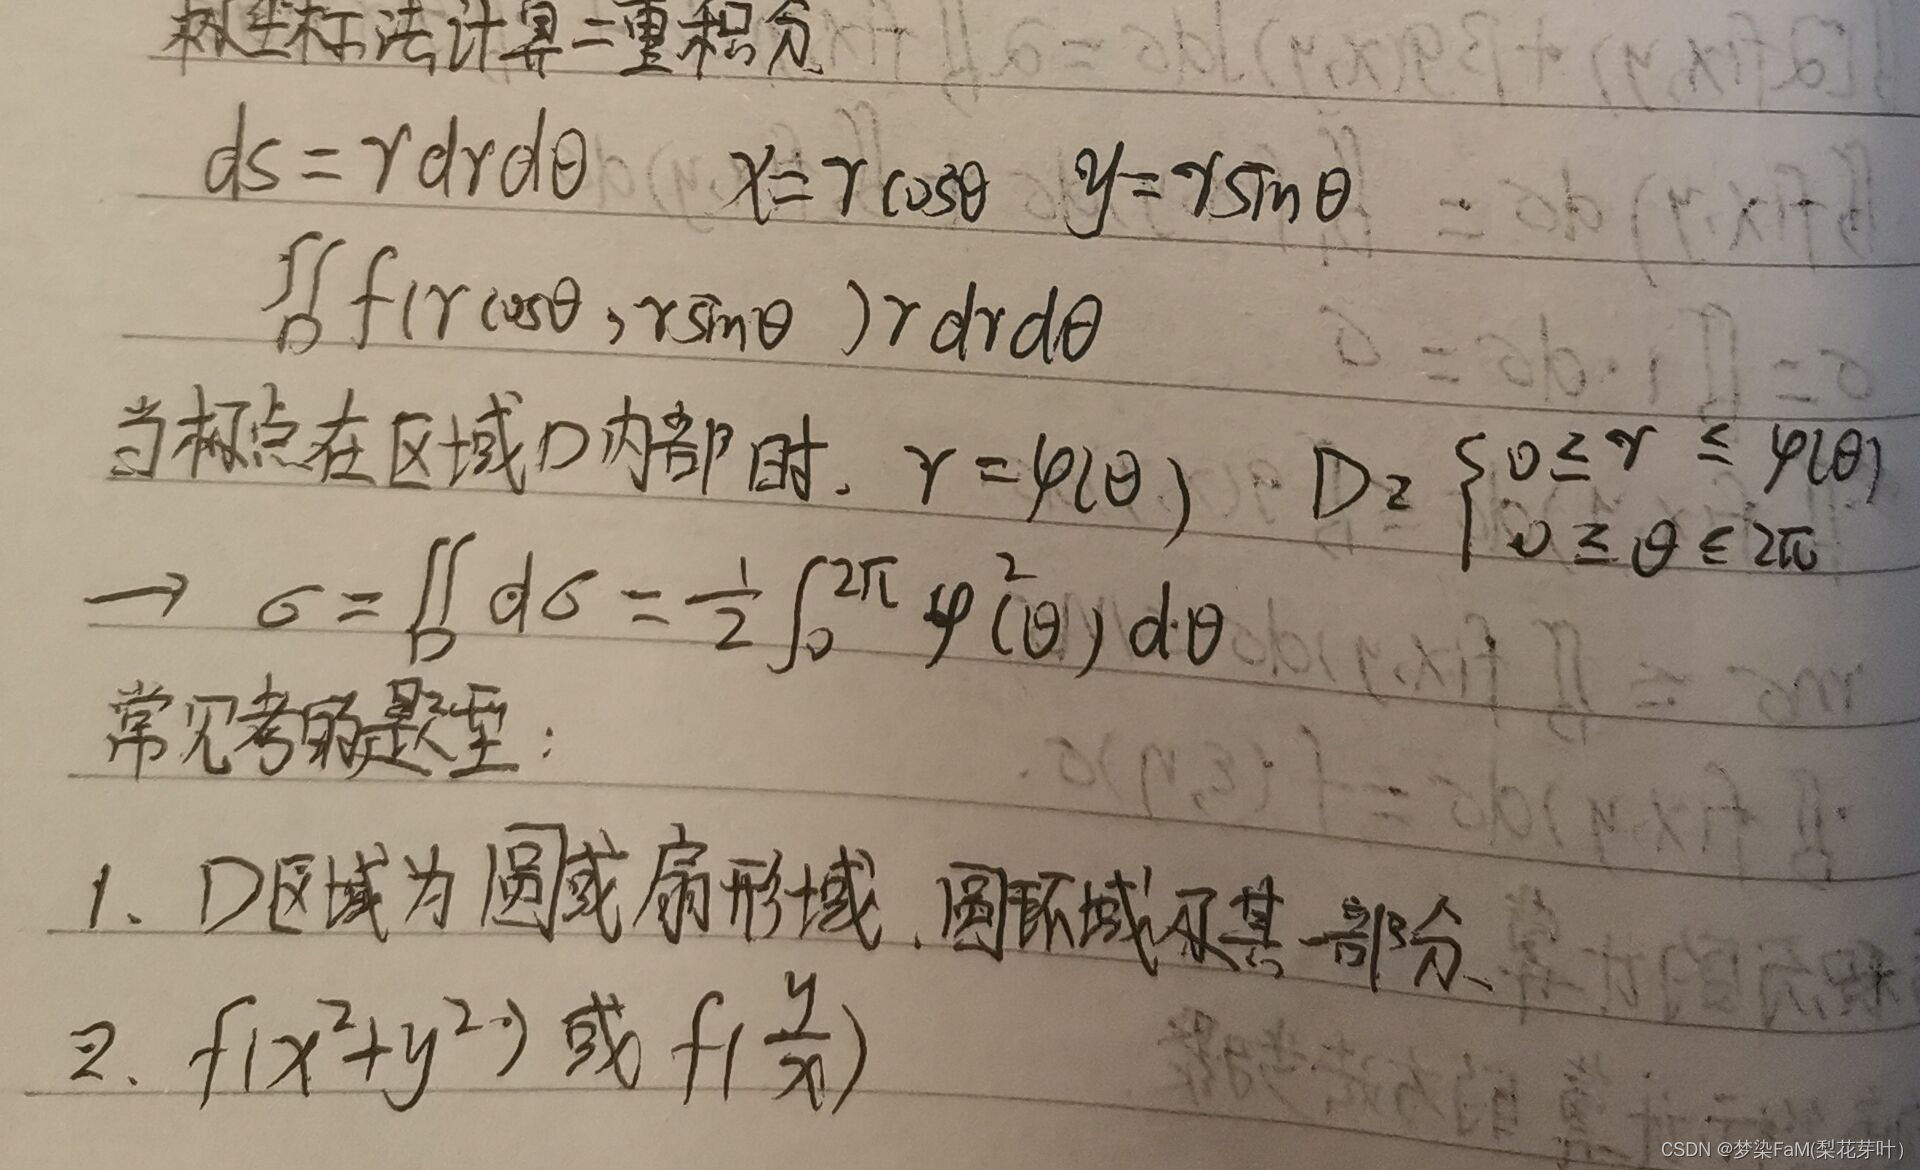 极坐标法计算二重积分
ds = r dr dθ x = r cosθ y = r sinθ
∬_D f(r cosθ, r sinθ) r dr dθ
当极点在区域D内部时. r = φ(θ) D = { 0 ≤ r ≤ φ(θ)
0 ≤ θ ≤ 2π
→ σ = ∬_D dσ = 1/2 ∫_0^{2π} φ²(θ) dθ
常见考的题型：
1、D区域为圆或扇形域、圆环域及其一部分、
2、f(x²+y²) 或 f(y/x)
CSDN @梦染FaM(梨花芽叶)